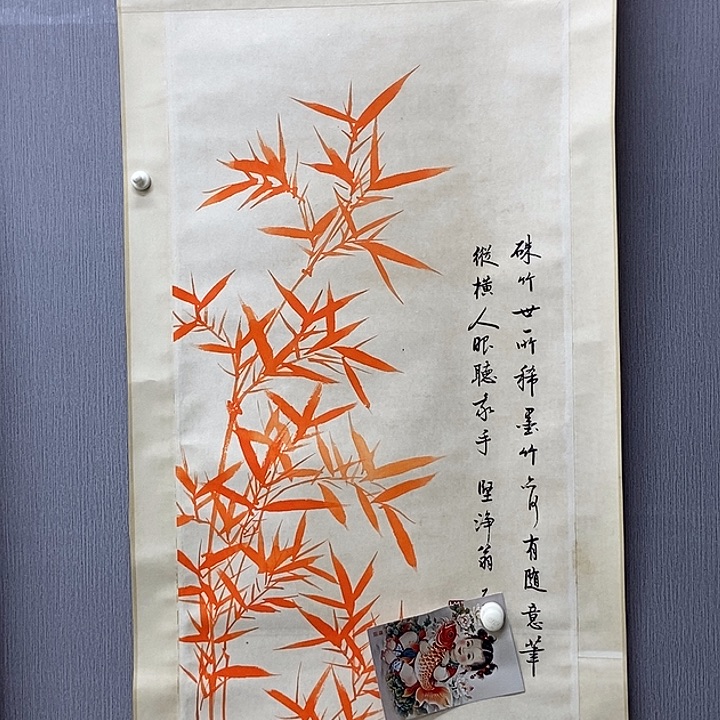 硃竹世所稀墨竹何有随意筆
縱橫人眼聽我手 堅淨翁